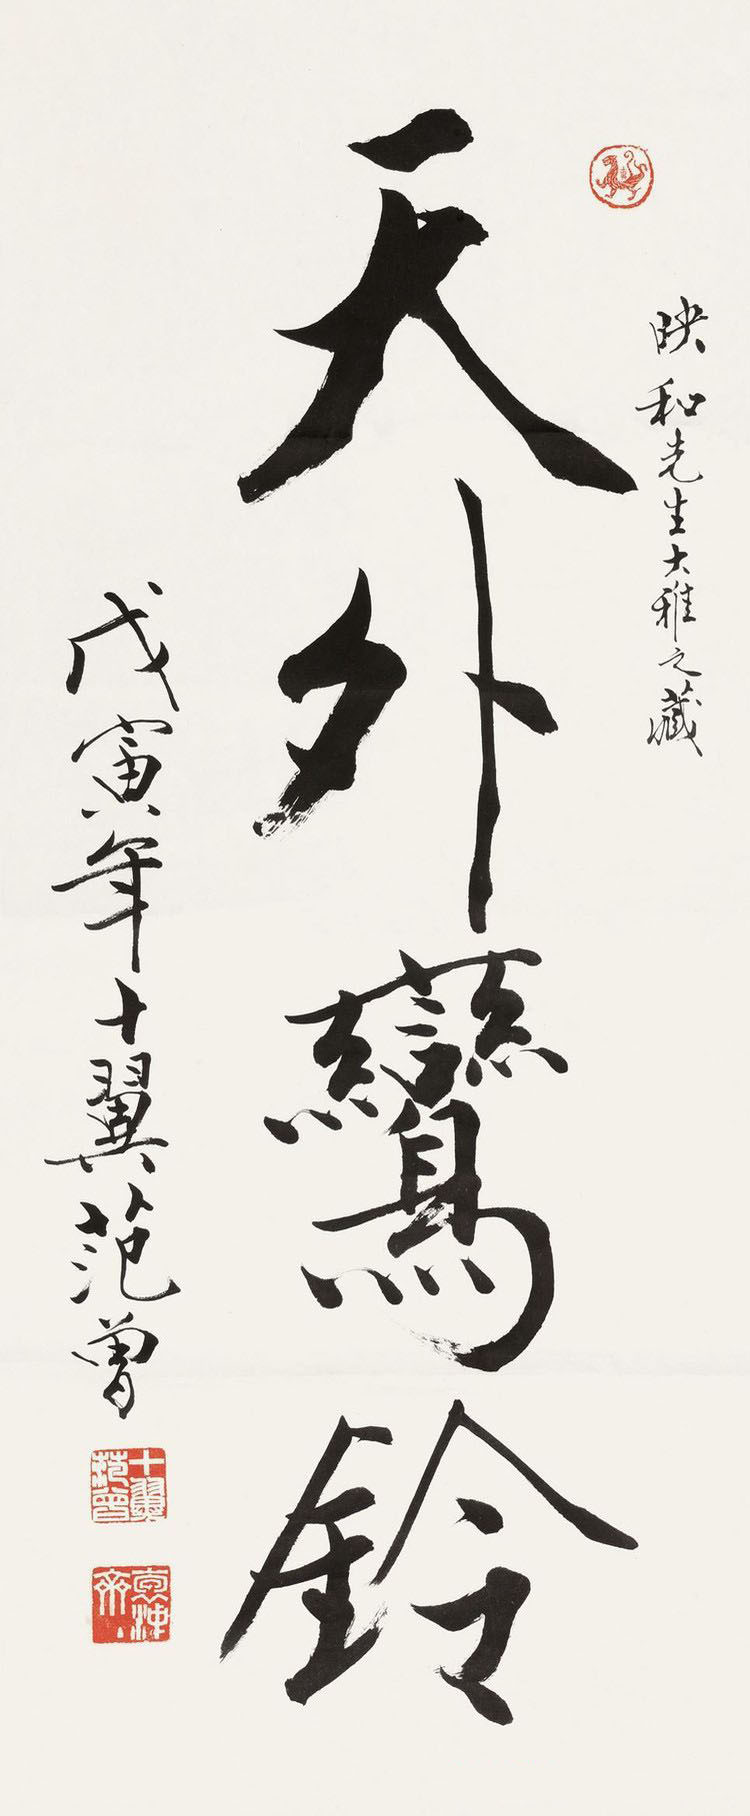 映和先生大雅之藏
天外鸞鈴
戊寅年十翼范曾
十翼范曾